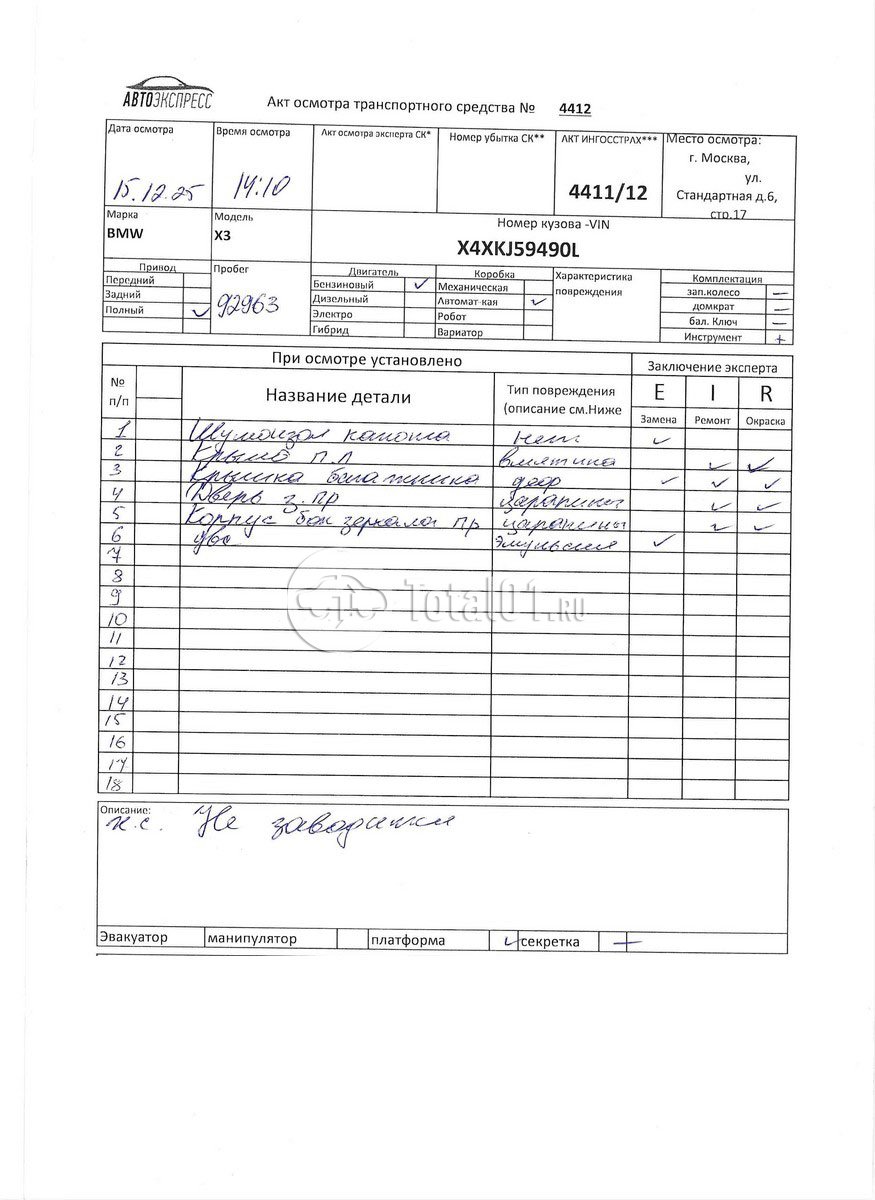 АВТОЭКСПРЕСС
Акт осмотра транспортного средства № 4412
Дата осмотра
15.12.25
Время осмотра
14:10
Акт осмотра эксперта СК*
Номер убытка СК**
АКТ ИНГОССТРАХ***
4411/12
Место осмотра:
г. Москва,
ул.
Стандартная д.6,
стр.17
Марка
BMW
Модель
X3
Номер кузова -VIN
X4XKJ59490L
Привод
Передний
Задний
Полный ✓
Пробег
92963
Двигатель
Бензиновый ✓
Дизельный
Электро
Гибрид
Коробка
Механическая
Автомат-кая ✓
Робот
Вариатор
Характеристика
повреждения
Комплектация
зап.колесо —
домкрат —
бал. Ключ —
Инструмент +
При осмотре установлено
Заключение эксперта
№
п/п
Название детали
Тип повреждения
(описание см.Ниже
E I R
Замена Ремонт Окраска
1 Шумоизол капота нет ✓
2 Крыло п.л вмятина ✓ ✓
3 Крышка багажника деф ✓ ✓ ✓
4 Дверь з.пр царапины ✓ ✓
5 Корпус бок зеркала пр царапины ✓ ✓
6 двс эмульсия ✓
7
8
9
10
11
12
13
14
15
16
17
18
Total01.RU
Описание:
н.с. Не заводится
Эвакуатор манипулятор платформа ✓ секретка —